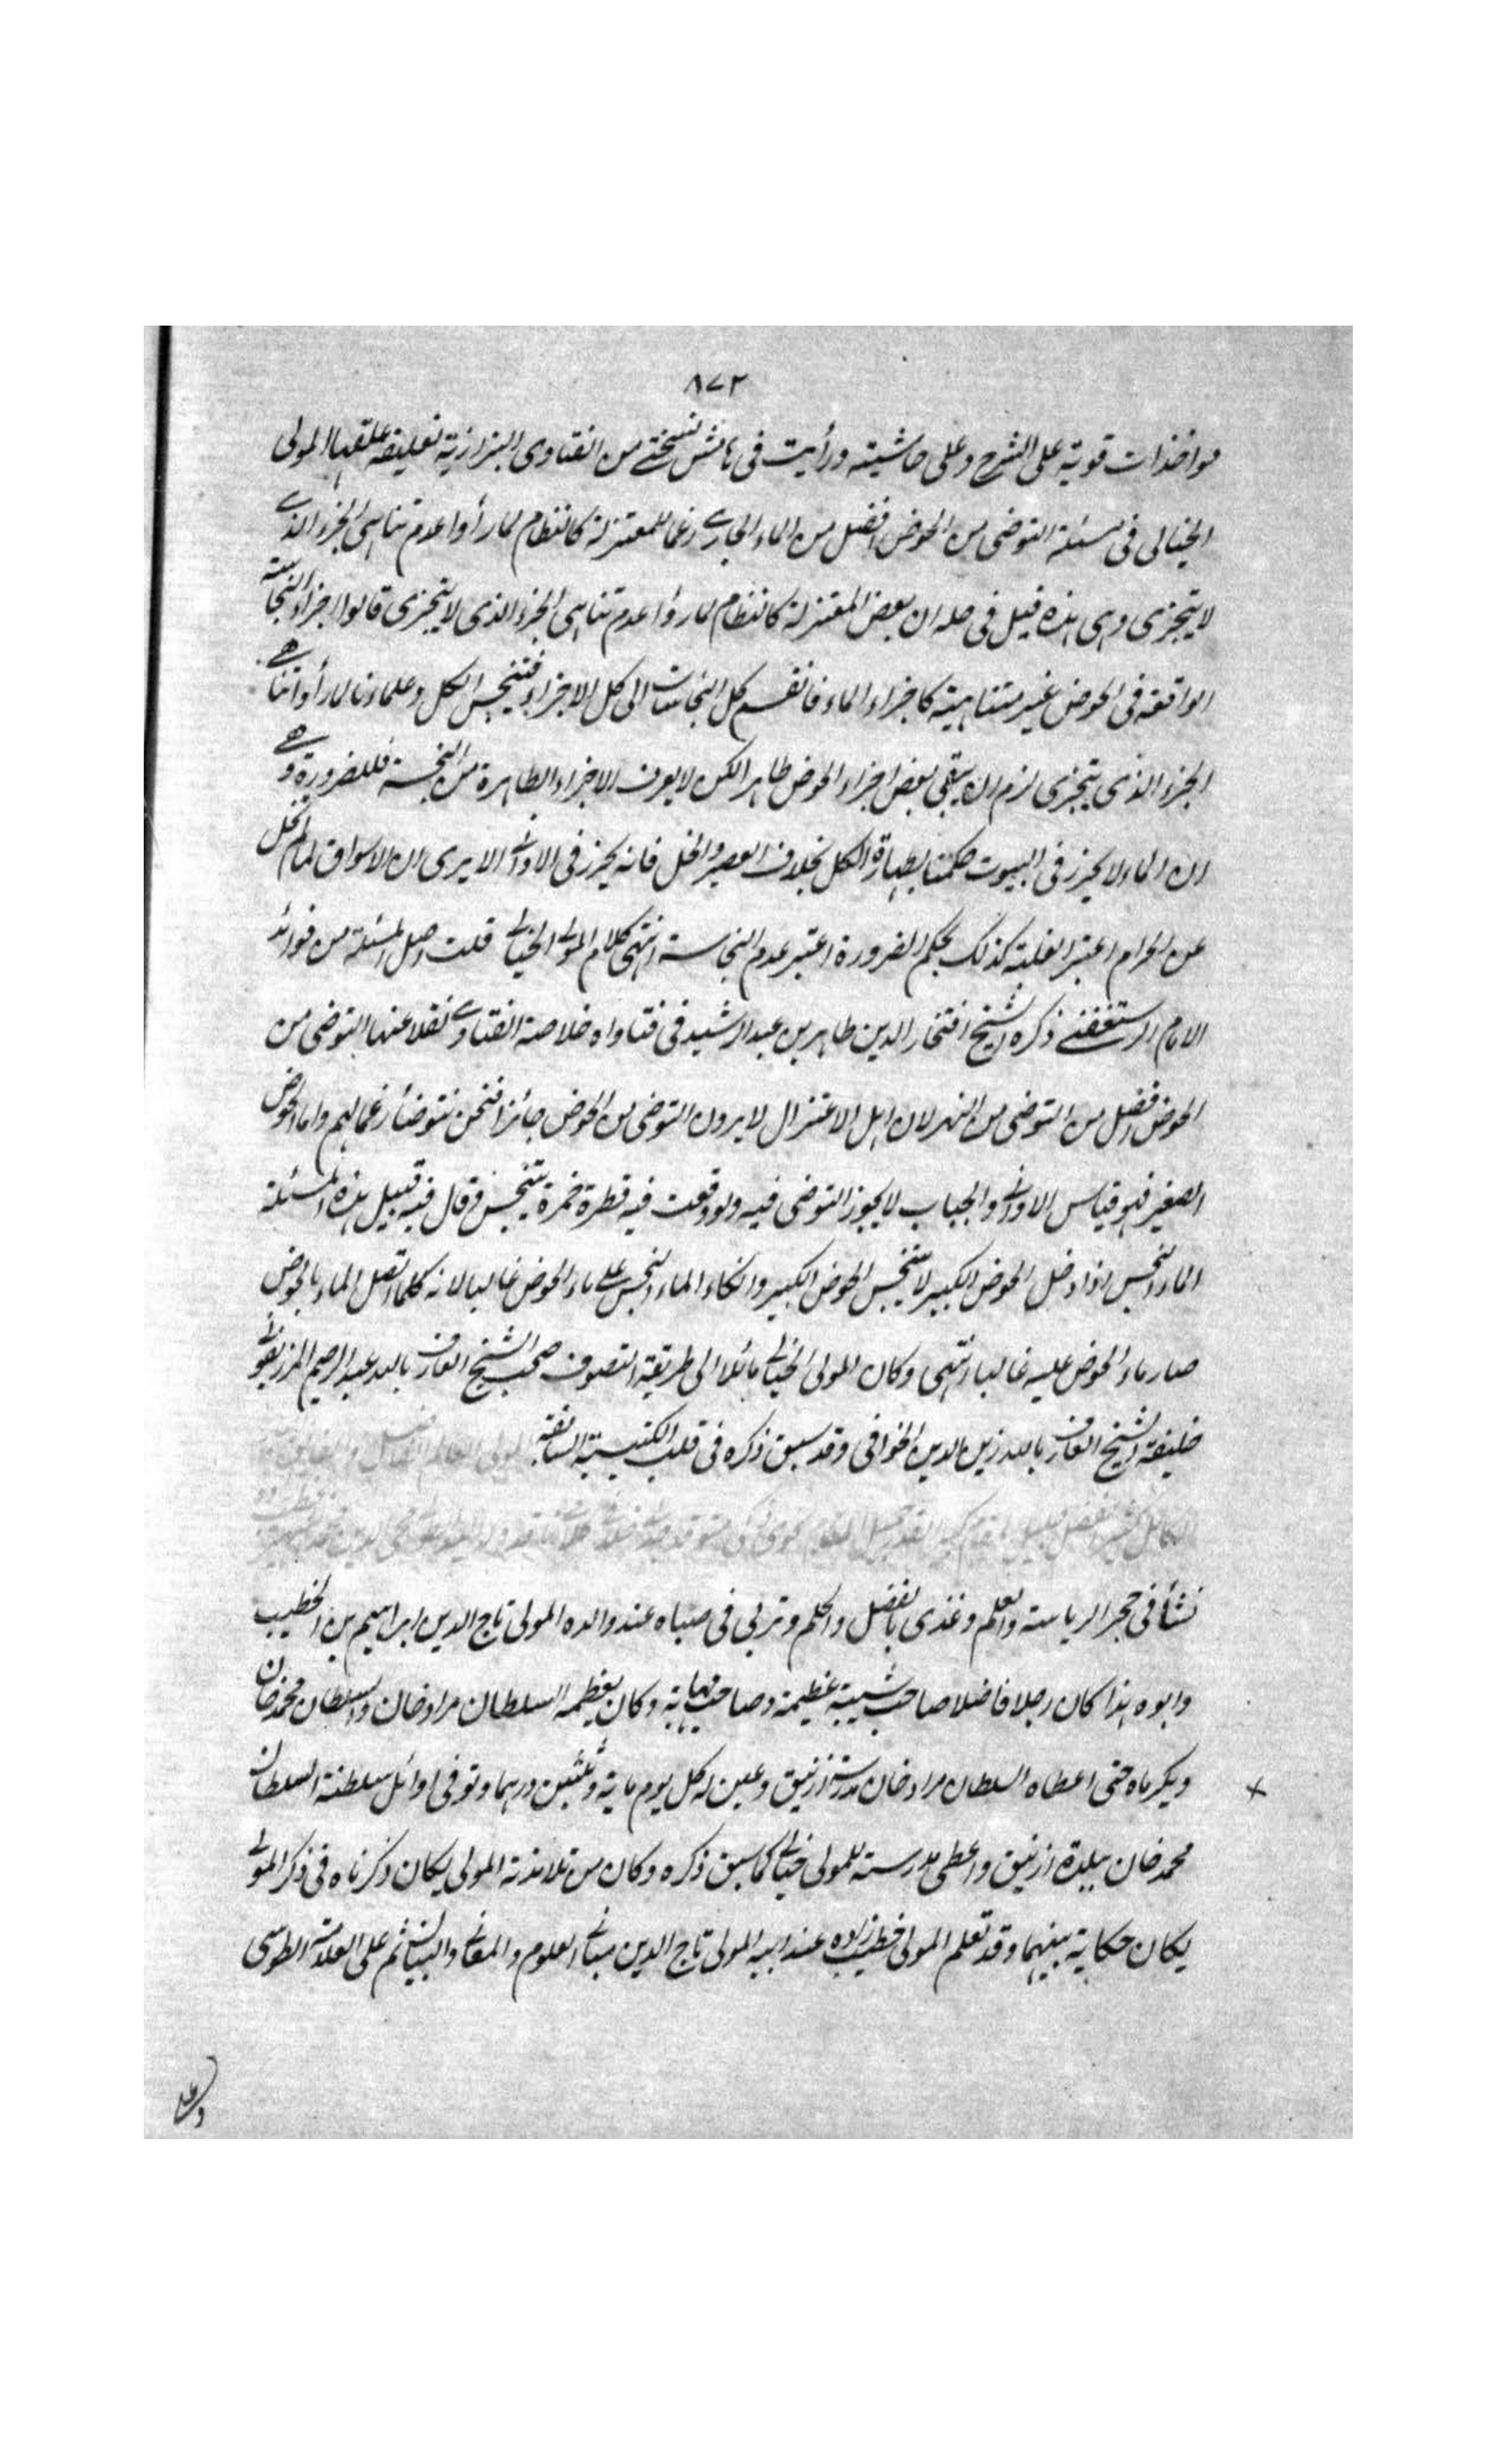 ٨٧٢
مواخذات قوية على الشرح وعلى حاشيته ورأيت في هامش نسختي من الفتاوى البزازية تعليقة علقها المولى
الخيالى فى مسئلة التوضى من الحوض افضل من الماء الجارى رغما للمعتزلة كالنظام لما رأوا عدم تناهى الجزء الذى
لا يتجزى وهى هذه قيل فى حله ان بعض المعتزلة كالنظام لما رؤا عدم تناهى الجزء الذى لا يتجزى قالوا اجزاء النجاسة
الواقعة فى الحوض غير متناهية كاجزاء الماء فانقسم كل النجاسات الى كل الاجزاء فتنجس الكل وعلماءنا لما رأوا تناهى
الجزء الذى يتجزى لزم ان يبقى بعض اجزاء الحوض طاهرا لكن لا يعرف الاجزاء الطاهرة من النجسة فللضرورة وهى
ان الماء لا يحرز فى البيوت حكمنا بطهارة الكل بخلاف العصير والخل فانه يحرز فى الاوانى الا يرى ان الاسواق لما لم تخل
عن الحرام اعتبر الغلبة كذلك بحكم الضرورة اعتبر عدم النجاسة انتهى كلام المولى الخيالى قلت اصل المسئلة من فوائد
الامام الرستغفنى ذكره الشيخ افتخار الدين طاهر بن عبد الرشيد فى فتاواه خلاصة الفتاوى نقلا عنها التوضى من
الحوض افضل من التوضى من النهر لان اهل الاعتزال لا يرون التوضى من الحوض جائزا فنحن نتوضأ رغما لهم واما الحوض
الصغير فهو قياس الاوانى والجباب لا يجوز التوضى فيه ولو وقعت فيه قطرة خمرة يتنجس وقال فيه قبيل هذه المسئلة
الماء النجس اذا دخل الحوض الكبير لا يتنجس الحوض الكبير وانكان الماء النجس على ماء الحوض غالبا لانه كلما اتصل الماء بالحوض
صار ماء الحوض عليه غالبا انتهى وكان المولى الخيالى مائلا الى طريقة التصوف صحب الشيخ العارف بالله عبد الرحيم المرزيفونى
خليفة الشيخ العارف بالله زين الدين الخوافى وقد سبق ذكره فى قلب الكتيبة السابقة المولى العالم الفاضل
نشأ فى حجر الرياسة والعلم وغذى بالفضل والحلم وتربى فى صباه عند والده المولى تاج الدين ابراهيم بن الخطيب
وابوه هذا كان رجلا فاضلا صاحب شيبة عظيمة وصاحب مهابة وكان يعظمه السلطان مراد خان والسلطان محمد خان
ويكرماه حتى اعطاه السلطان مراد خان مدرسة ازنيق وعين له كل يوم ماية وثلثين درهما وتوفى اوائل سلطنة السلطان
محمد خان ببلدة ازنيق واعطى مدرسته للمولى خيالى كما سبق ذكره وكان من تلامذة المولى يكان ذكرناه فى ذكر المولى
يكان حكاية بينهما وقد تعلم المولى خطيب زاده عند ابيه المولى تاج الدين مبانى العلوم والمعانى والبيان ثم على العلامة الطوسى